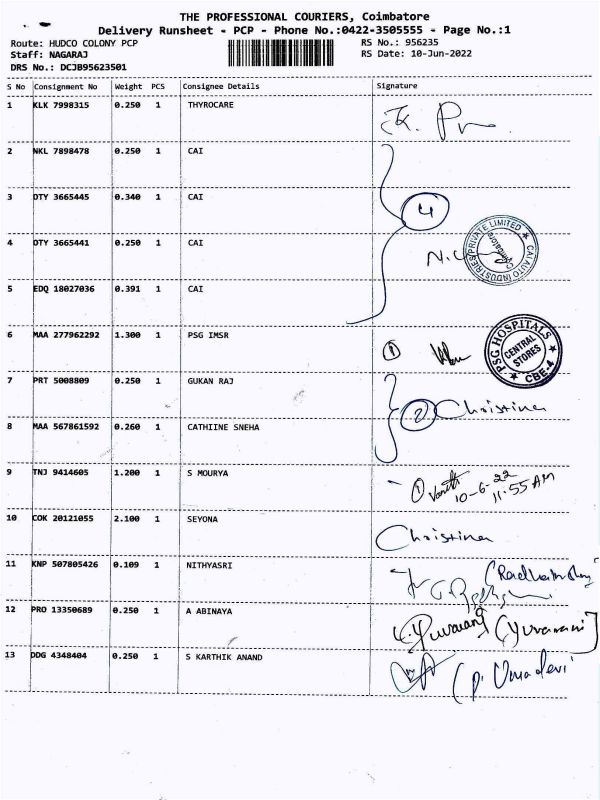 THE PROFESSIONAL COURIERS, Coimbatore
Delivery Runsheet - PCP - Phone No.:0422-3505555 - Page No.:1
Route: HUDCO COLONY PCP
RS No.: 956235
Staff: NAGARAJ
RS Date: 10-Jun-2022
DRS No.: DCJB95623501
S No Consignment No Weight PCS Consignee Details Signature
1 KLK 7998315 0.250 1 THYROCARE
2 NKL 7898478 0.250 1 CAI
3 OTY 3665445 0.340 1 CAI
4
4 OTY 3665441 0.250 1 CAI
CAI AUTO INDUSTRIES PRIVATE LIMITED ★
Coimbatore
5 EDQ 18027036 0.391 1 CAI
6 MAA 277962292 1.300 1 PSG IMSR
1
PSG HOSPITALS
CENTRAL
STORES
★ CBE-4 ★
7 PRT 5008809 0.250 1 GUKAN RAJ
2 Christina
8 MAA 567861592 0.260 1 CATHIINE SNEHA
9 TNJ 9414605 1.200 1 S MOURYA
1
10-6-22
11.55 AM
10 COK 20121055 2.100 1 SEYONA
Christina
11 KNP 507805426 0.109 1 NITHYASRI
12 PRO 13350689 0.250 1 A ABINAYA
(Yuvarani)
13 DDG 4348404 0.250 1 S KARTHIK ANAND
(P. Umadevi